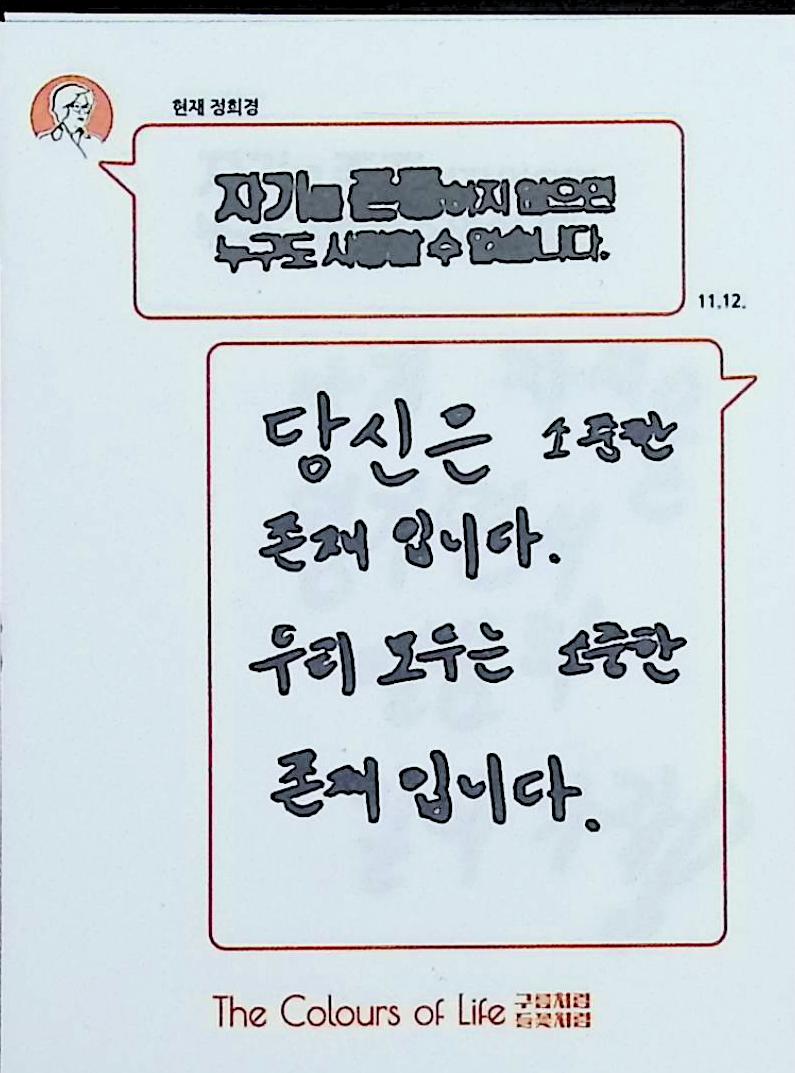 현재 정희경
자기를 존중하지 않으면
누구도 사랑할 수 없습니다.
11.12.
당신은 소중한
존재 입니다.
우리 모두는 소중한
존재 입니다.
The Colours of Life 구름처럼
들꽃처럼